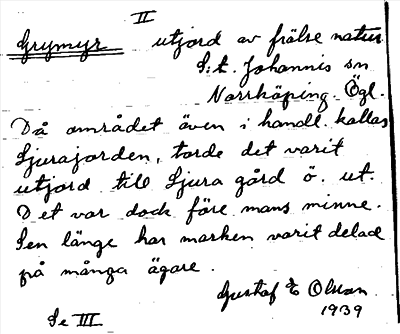 II
Grymyr utjord av frälse natur
S:t. Johannis sn
Norrköping. Ögl.
Då området även i handl. kallas
Sjurajorden, torde det varit
utjord till Sjura gård ö. ut.
Det var dock före mans minne.
Sen länge har marken varit delad
på många ägare.
Gustaf E Olsson
1939
Se III